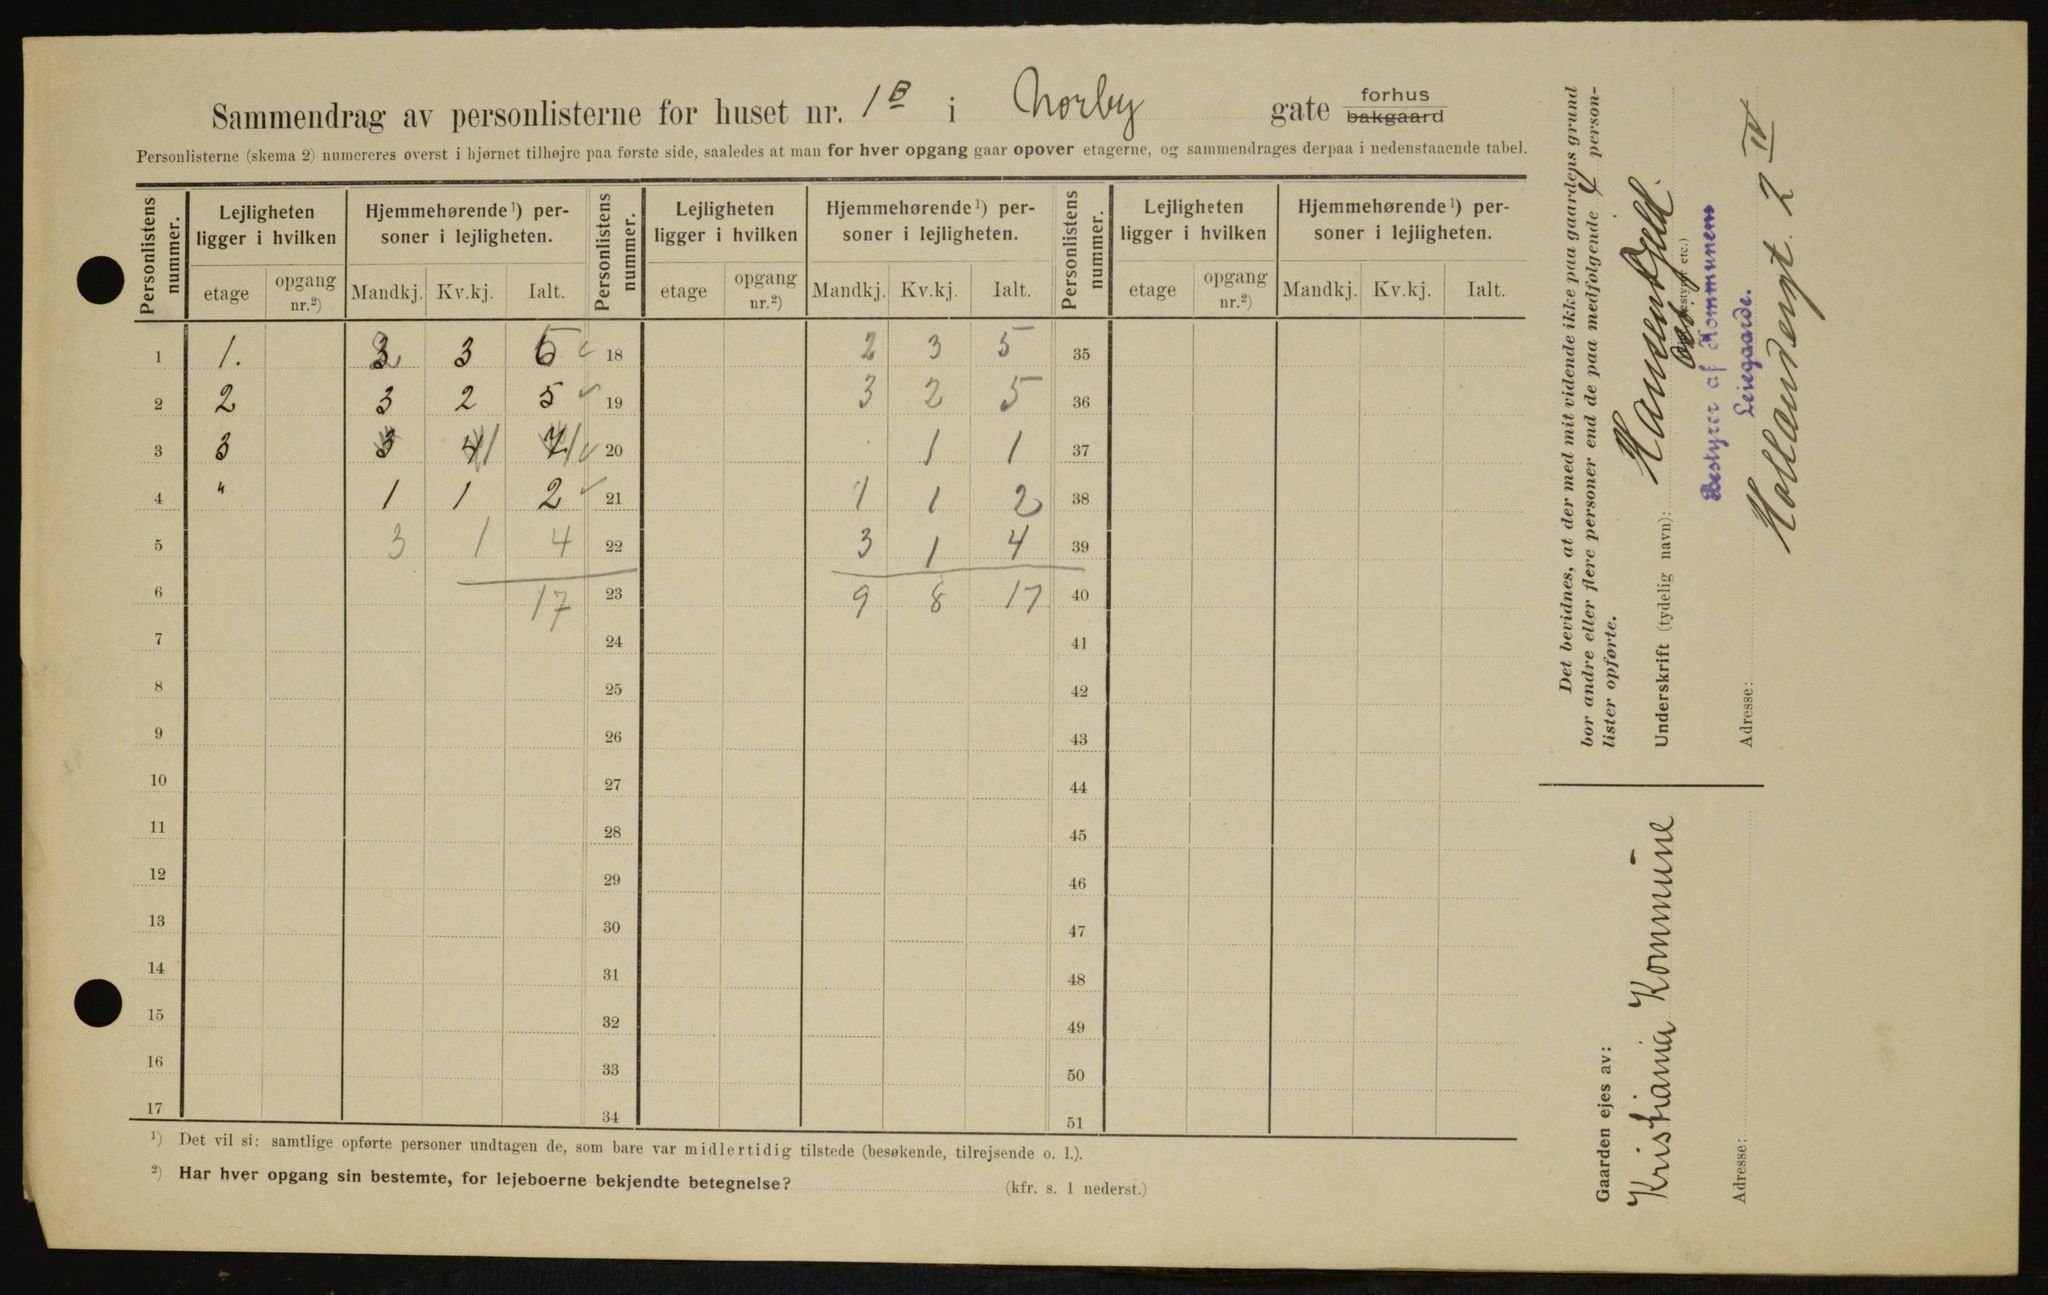 Sammendrag av personlisterne for huset nr. 1B i Norby gate forhus bakgaard
Personlisterne (skema 2) numereres øverst i hjørnet tilhøjre paa første side, saaledes at man for hver opgang gaar opover etagerne, og sammendrages derpaa i nedenstaaende tabel.
Personlistens nummer. Lejligheten ligger i hvilken Hjemmehørende ¹) personer i lejligheten. Personlistens nummer. Lejligheten ligger i hvilken Hjemmehørende ¹) personer i lejligheten. Personlistens nummer. Lejligheten ligger i hvilken Hjemmehørende ¹) personer i lejligheten.
etage opgang nr.²) Mandkj. Kv.kj. Ialt. etage opgang nr.²) Mandkj. Kv.kj. Ialt. etage opgang nr.²) Mandkj. Kv.kj. Ialt.
1 1. 2 3 5 18 2 3 5 35
2 2 3 2 5 19 3 2 5 36
3 3 3 4 1 7 1 20 1 1 37
4 " 1 1 2 21 1 1 2 38
5 3 1 4 22 3 1 4 39
6 17 23 9 8 17 40
7 24 41
8 25 42
9 26 43
10 27 44
11 28 45
12 29 46
13 30 47
14 31 48
15 32 49
16 33 50
17 34 51
¹) Det vil si: samtlige opførte personer undtagen de, som bare var midlertidig tilstede (besøkende, tilrejsende o. l.).
²) Har hver opgang sin bestemte, for lejeboerne bekjendte betegnelse? (kfr. s. 1 nederst.)
Det bevidnes, at der med mit vidende ikke paa gaardens grund
bor andre eller flere personer end de paa medfølgende 4 person-
lister opførte.
Underskrift (tydelig navn):
Bestyrer af Kommunens
Leiegaarde.
Adresse: Hollendergt. 2 IV
Gaarden ejes av:
Kristiania Kommune
Adresse: